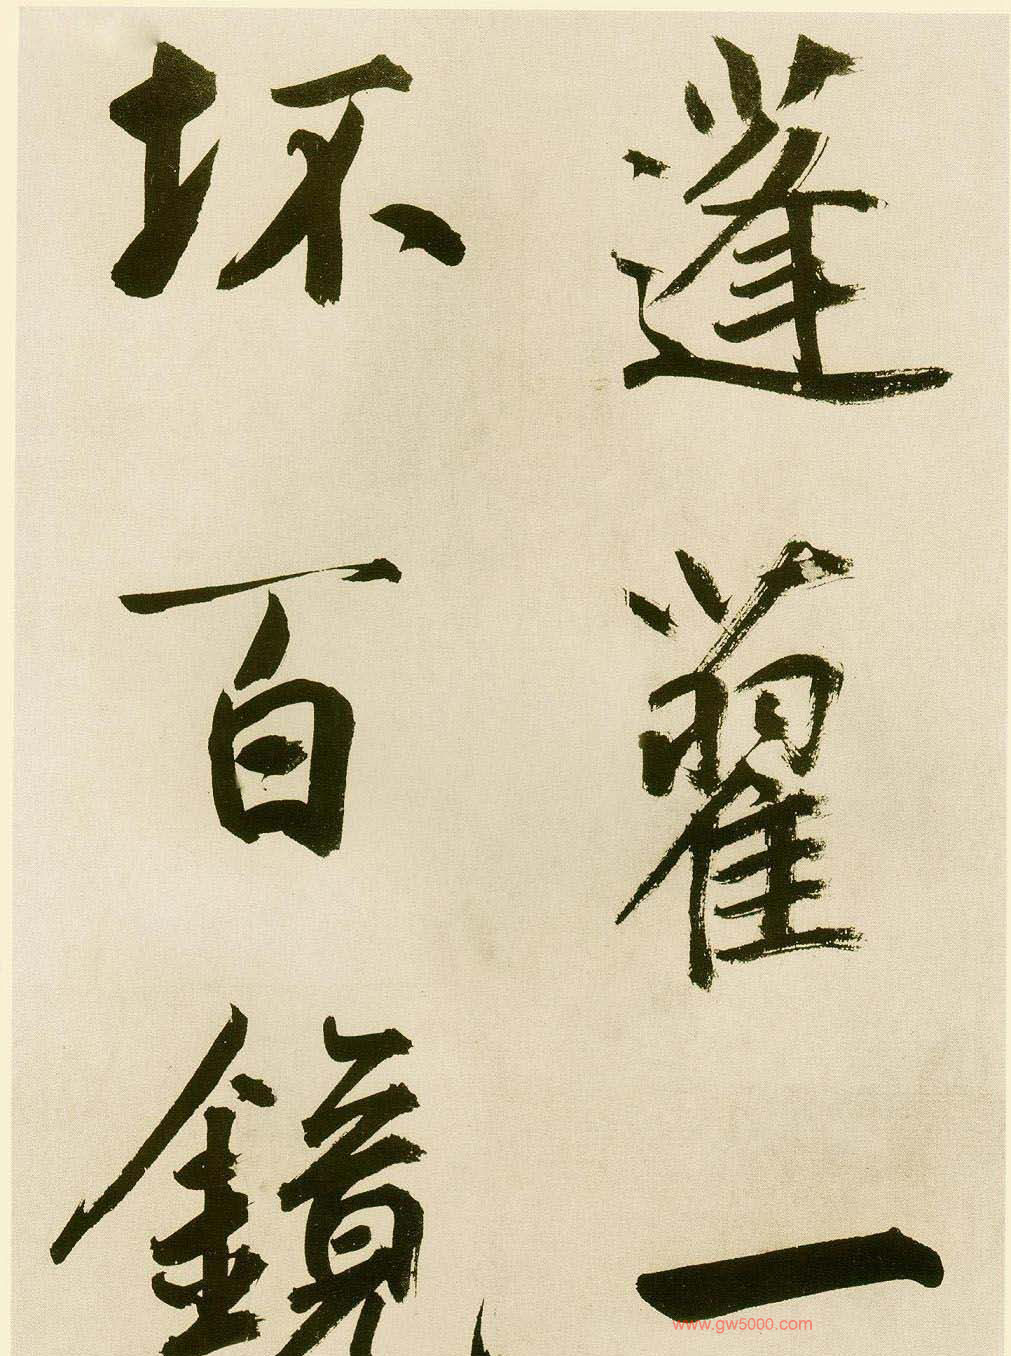 蓬藋一
坏百鏡
www.gw5000.com